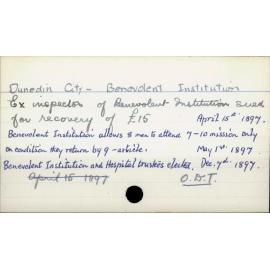 Dunedin City - Benevolent Institution
Ex inspector of Benevolent Institution sued
for recovery of £15 April 15th 1897.
Benevolent Institution allows 8 men to attend 7-10 mission only
on condition they return by 9 - article. May 1st 1897
Benevolent Institution and Hospital trustees elected. Dec. 7th 1897.
April 15 1897 O.D.T.